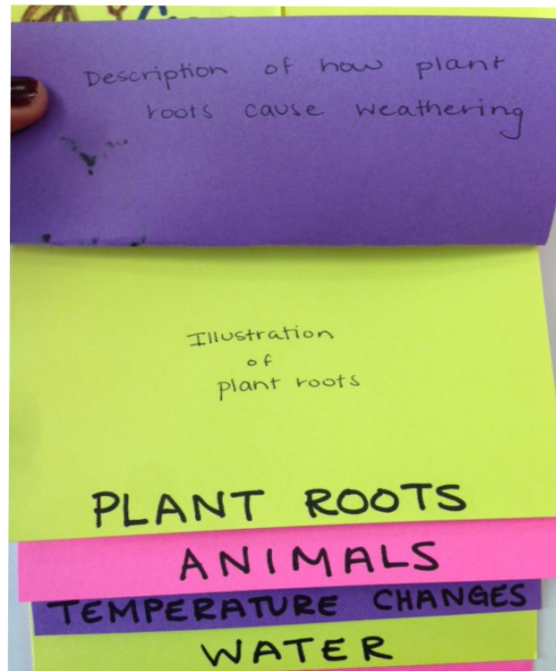 Description of how plant
roots cause weathering
Illustration
of
plant roots
PLANT ROOTS
ANIMALS
TEMPERATURE CHANGES
WATER